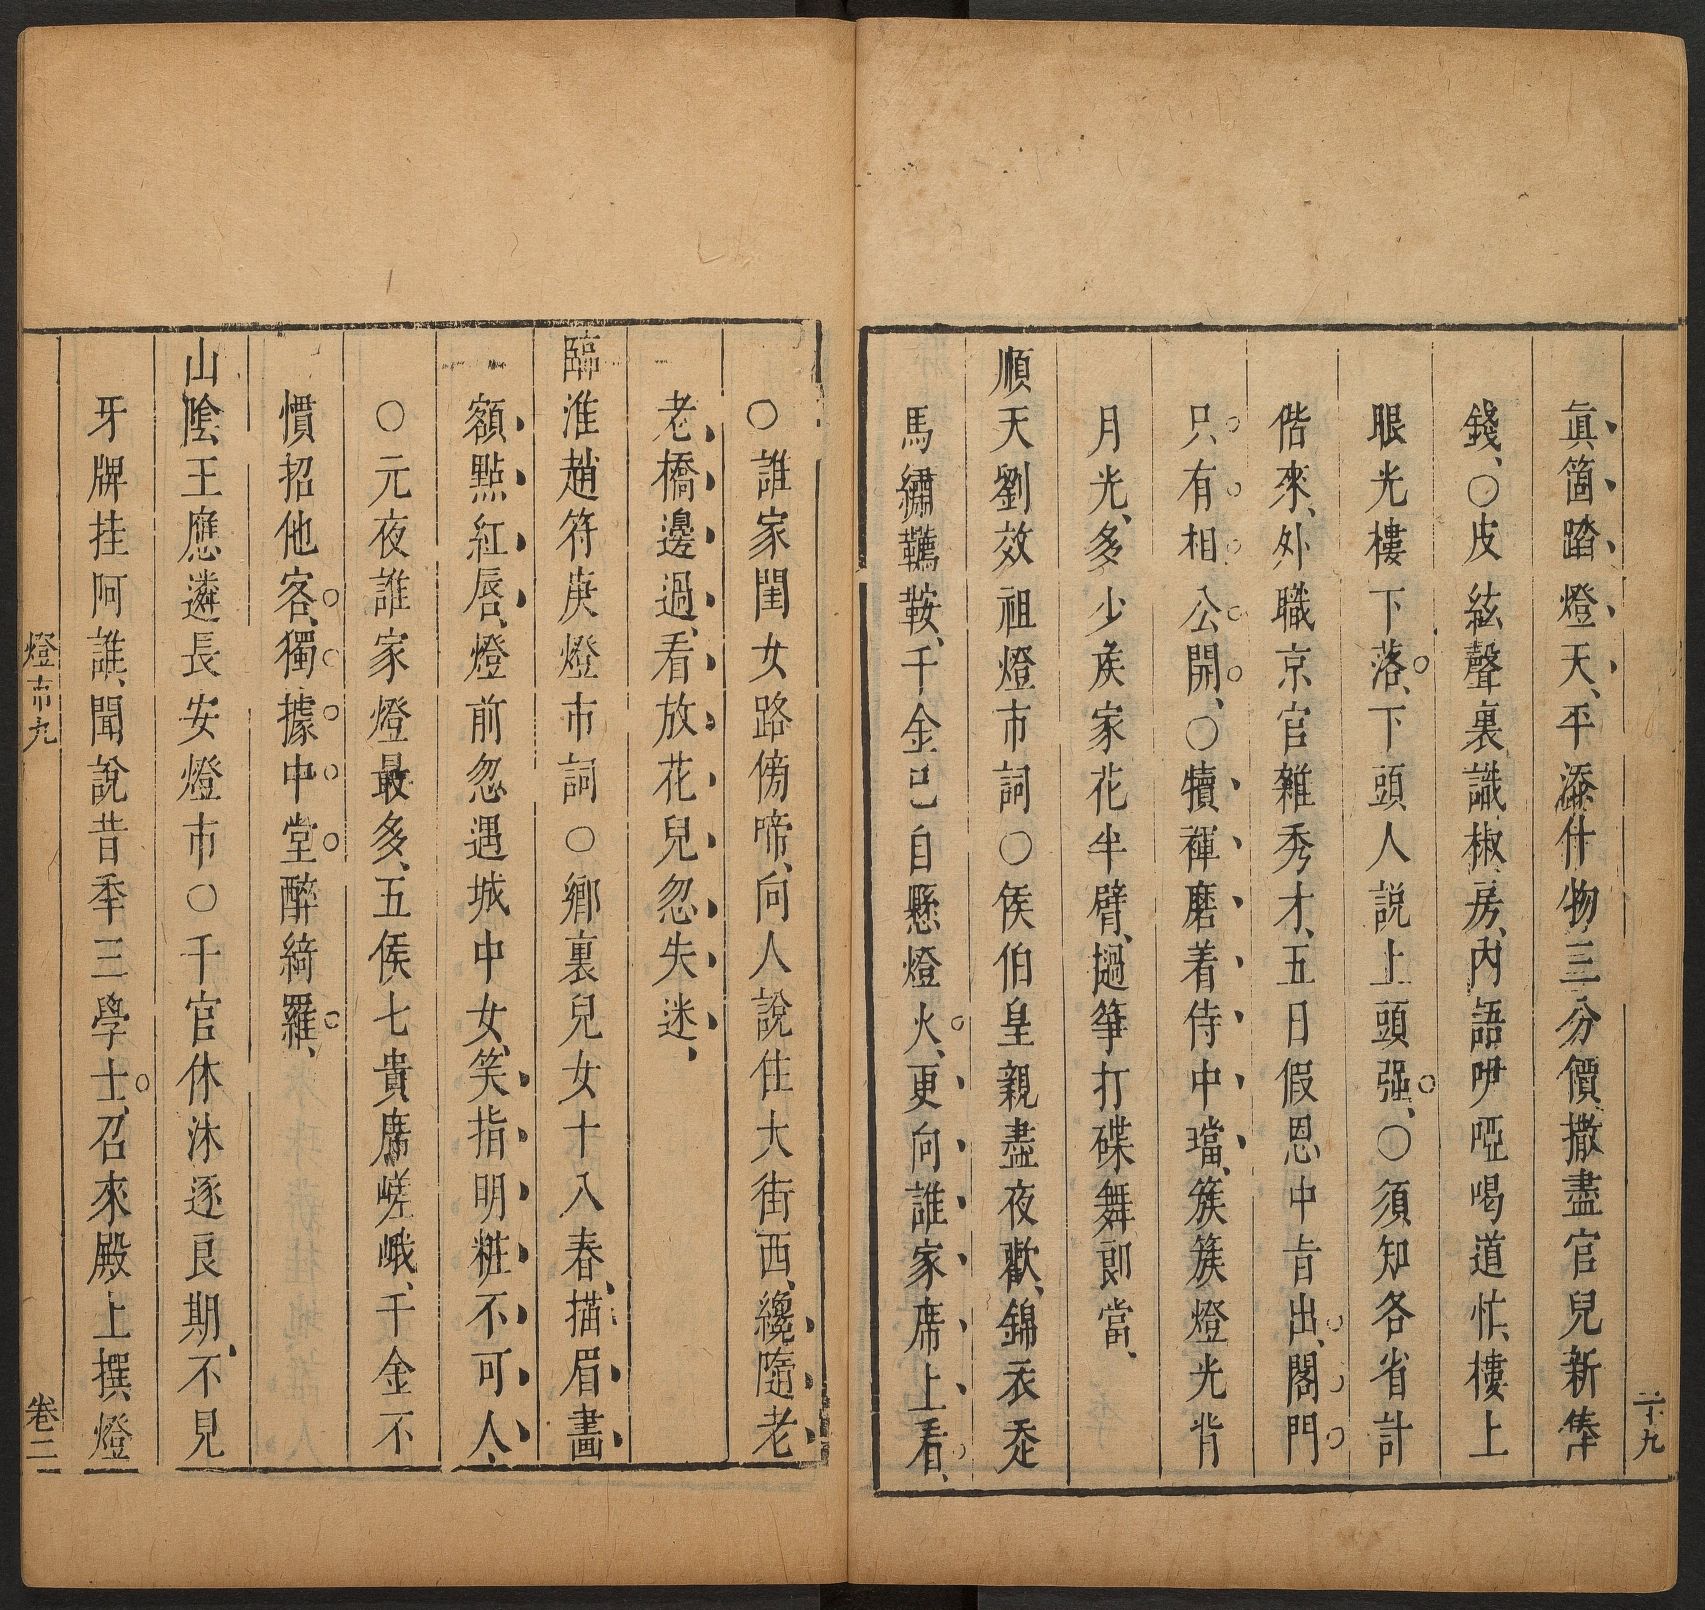 二十九
真箇踏燈天、平添什物三分價撒盡官兒新俸
錢、○皮絃聲裏識椒房、內語咿啞喝道忙、樓上
眼光樓下落、下頭人說上頭强、○須知各省計
偕來、外職京官雜秀才、五日假恩中旨出、閣門
只有相公開、○犢褌磨着侍中璫、簇簇燈光背
月光、多少矦家花半臂、撾箏打碟舞郎當、
順天劉效祖燈市詞○侯伯皇親盡夜歡、錦衣走
馬繡韉鞍、千金已自懸燈火、更向誰家席上看、
○誰家閨女路傍啼、向人說住大街西、纔隨老
老橋邊過、看放花兒忽失迷、
臨淮趙符庚燈市詞○鄉裏兒女十八春、描眉畵
額點紅唇、燈前忽遇城中女、笑指明粧不可人、
○元夜誰家燈最多、五侯七貴席嵯峨、千金不
慣招他客、獨據中堂醉綺羅、
山陰王應遴長安燈市○千官休沐逐良期、不見
牙牌挂阿誰、聞說昔年三學士、召來殿上撰燈
燈市九 卷二